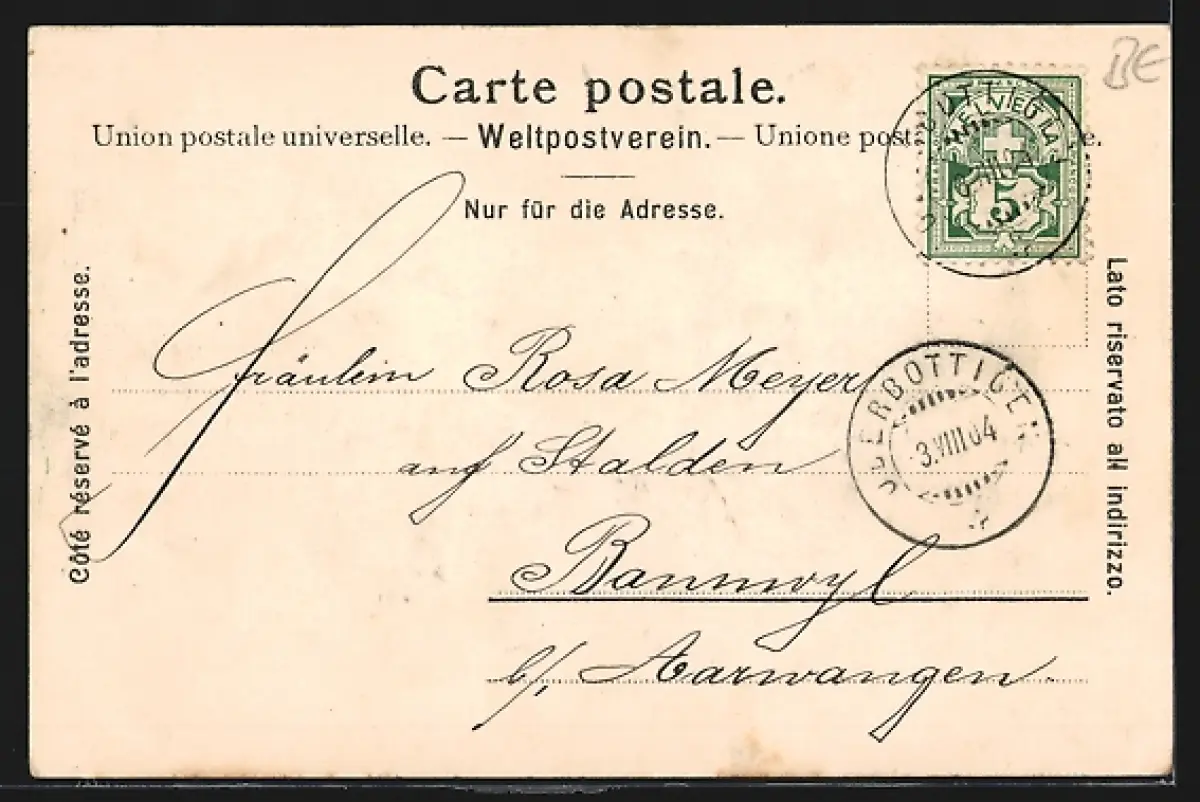 BE
Carte postale.
Union postale universelle. — Weltpostverein. — Unione post e.
Nur für die Adresse.
HELVETIA
5
Côté réservé à l'adresse.
Lato riservato all indirizzo.
Fräulein Rosa Meyer
OBERBOTTIGEN
3.VIII 04
auf Stalden
Bannwyl
b/, Aarwangen.